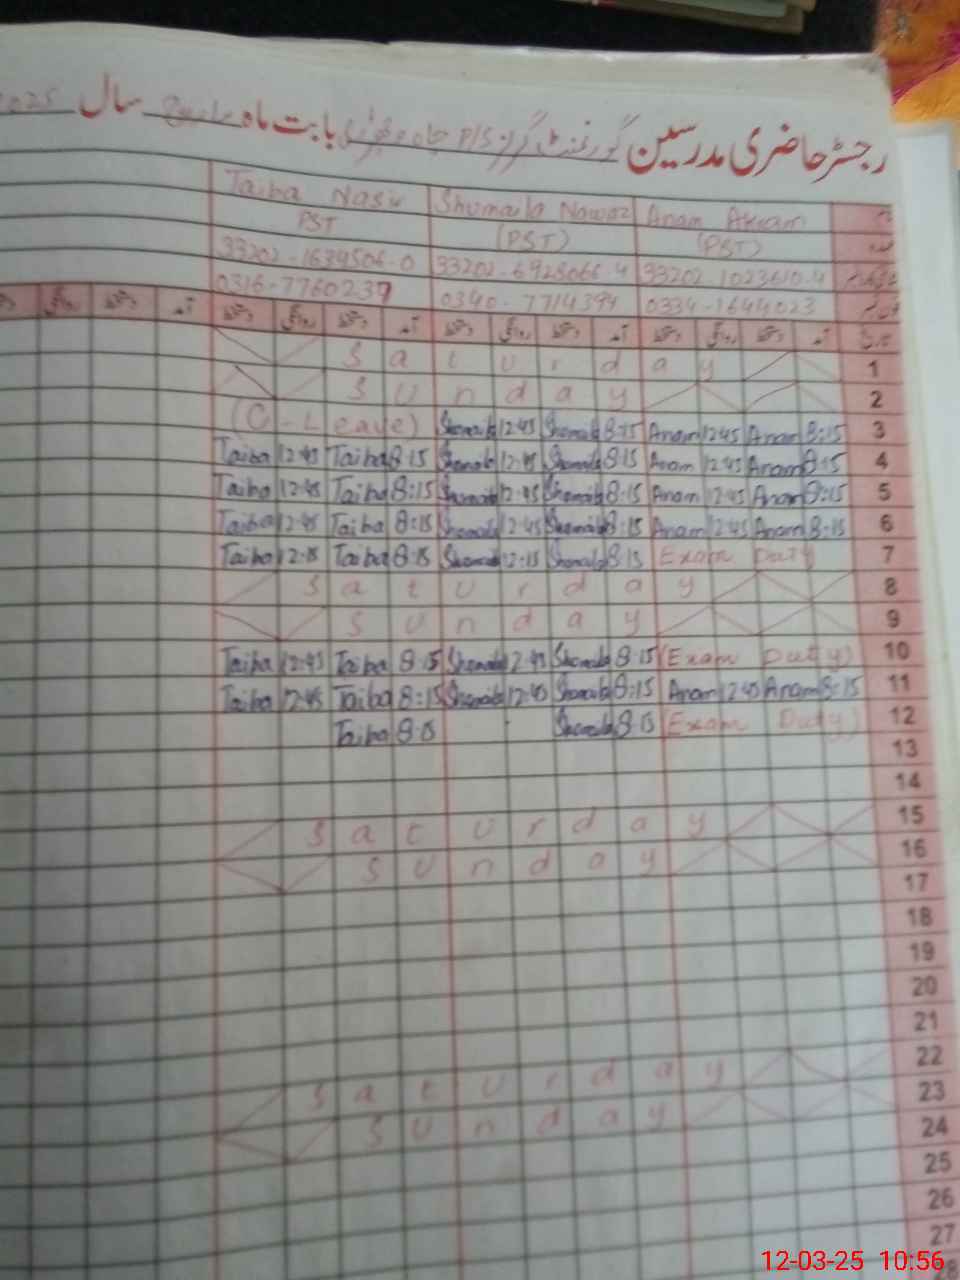 رجسٹر حاضری مدرسین گورنمنٹ گرلز P/S چاہ بابت ماہ مارچ سال 2025
Anam Akram Shumaila Nawaz Taiba Nasir
(PST) (PST) PST
33202-1023610-4 33202-6928066-4 33202-1639506-0
0334-1644023 0340-7714394 0316-7760237
آمد دستخط روانگی دستخط آمد دستخط روانگی دستخط آمد دستخط روانگی دستخط آمد دستخط روانگی
1 Saturday
2 Sunday
3 Anam 8:15 Anam 12:45 Shomaila 8:15 Shomaila 12:45 (C-Leave)
4 Anam 8:15 Anam 12:45 Shomaila 8:15 Shomaila 12:45 Taiba 8:15 Taiba 12:45
5 Anam 8:15 Anam 12:45 Shomaila 8:15 Shomaila 12:45 Taiba 8:15 Taiba 12:45
6 Anam 8:15 Anam 12:45 Shomaila 8:15 Shomaila 12:45 Taiba 8:15 Taiba 12:45
7 Exam Duty Shomaila 8:15 Shomaila 12:15 Taiba 8:15 Taiba 12:15
8 Saturday
9 Sunday
10 (Exam Duty) Shomaila 8:15 Shomaila 12:45 Taiba 8:15 Taiba 12:45
11 Anam 8:15 Anam 12:45 Shomaila 8:15 Shomaila 12:45 Taiba 8:15 Taiba 12:45
12 (Exam Duty) Shomaila 8:15 Taiba 8:15
13
14
15 Saturday
16 Sunday
17
18
19
20
21
22 Saturday
23 Sunday
24
25
26
27
28
12-03-25 10:56